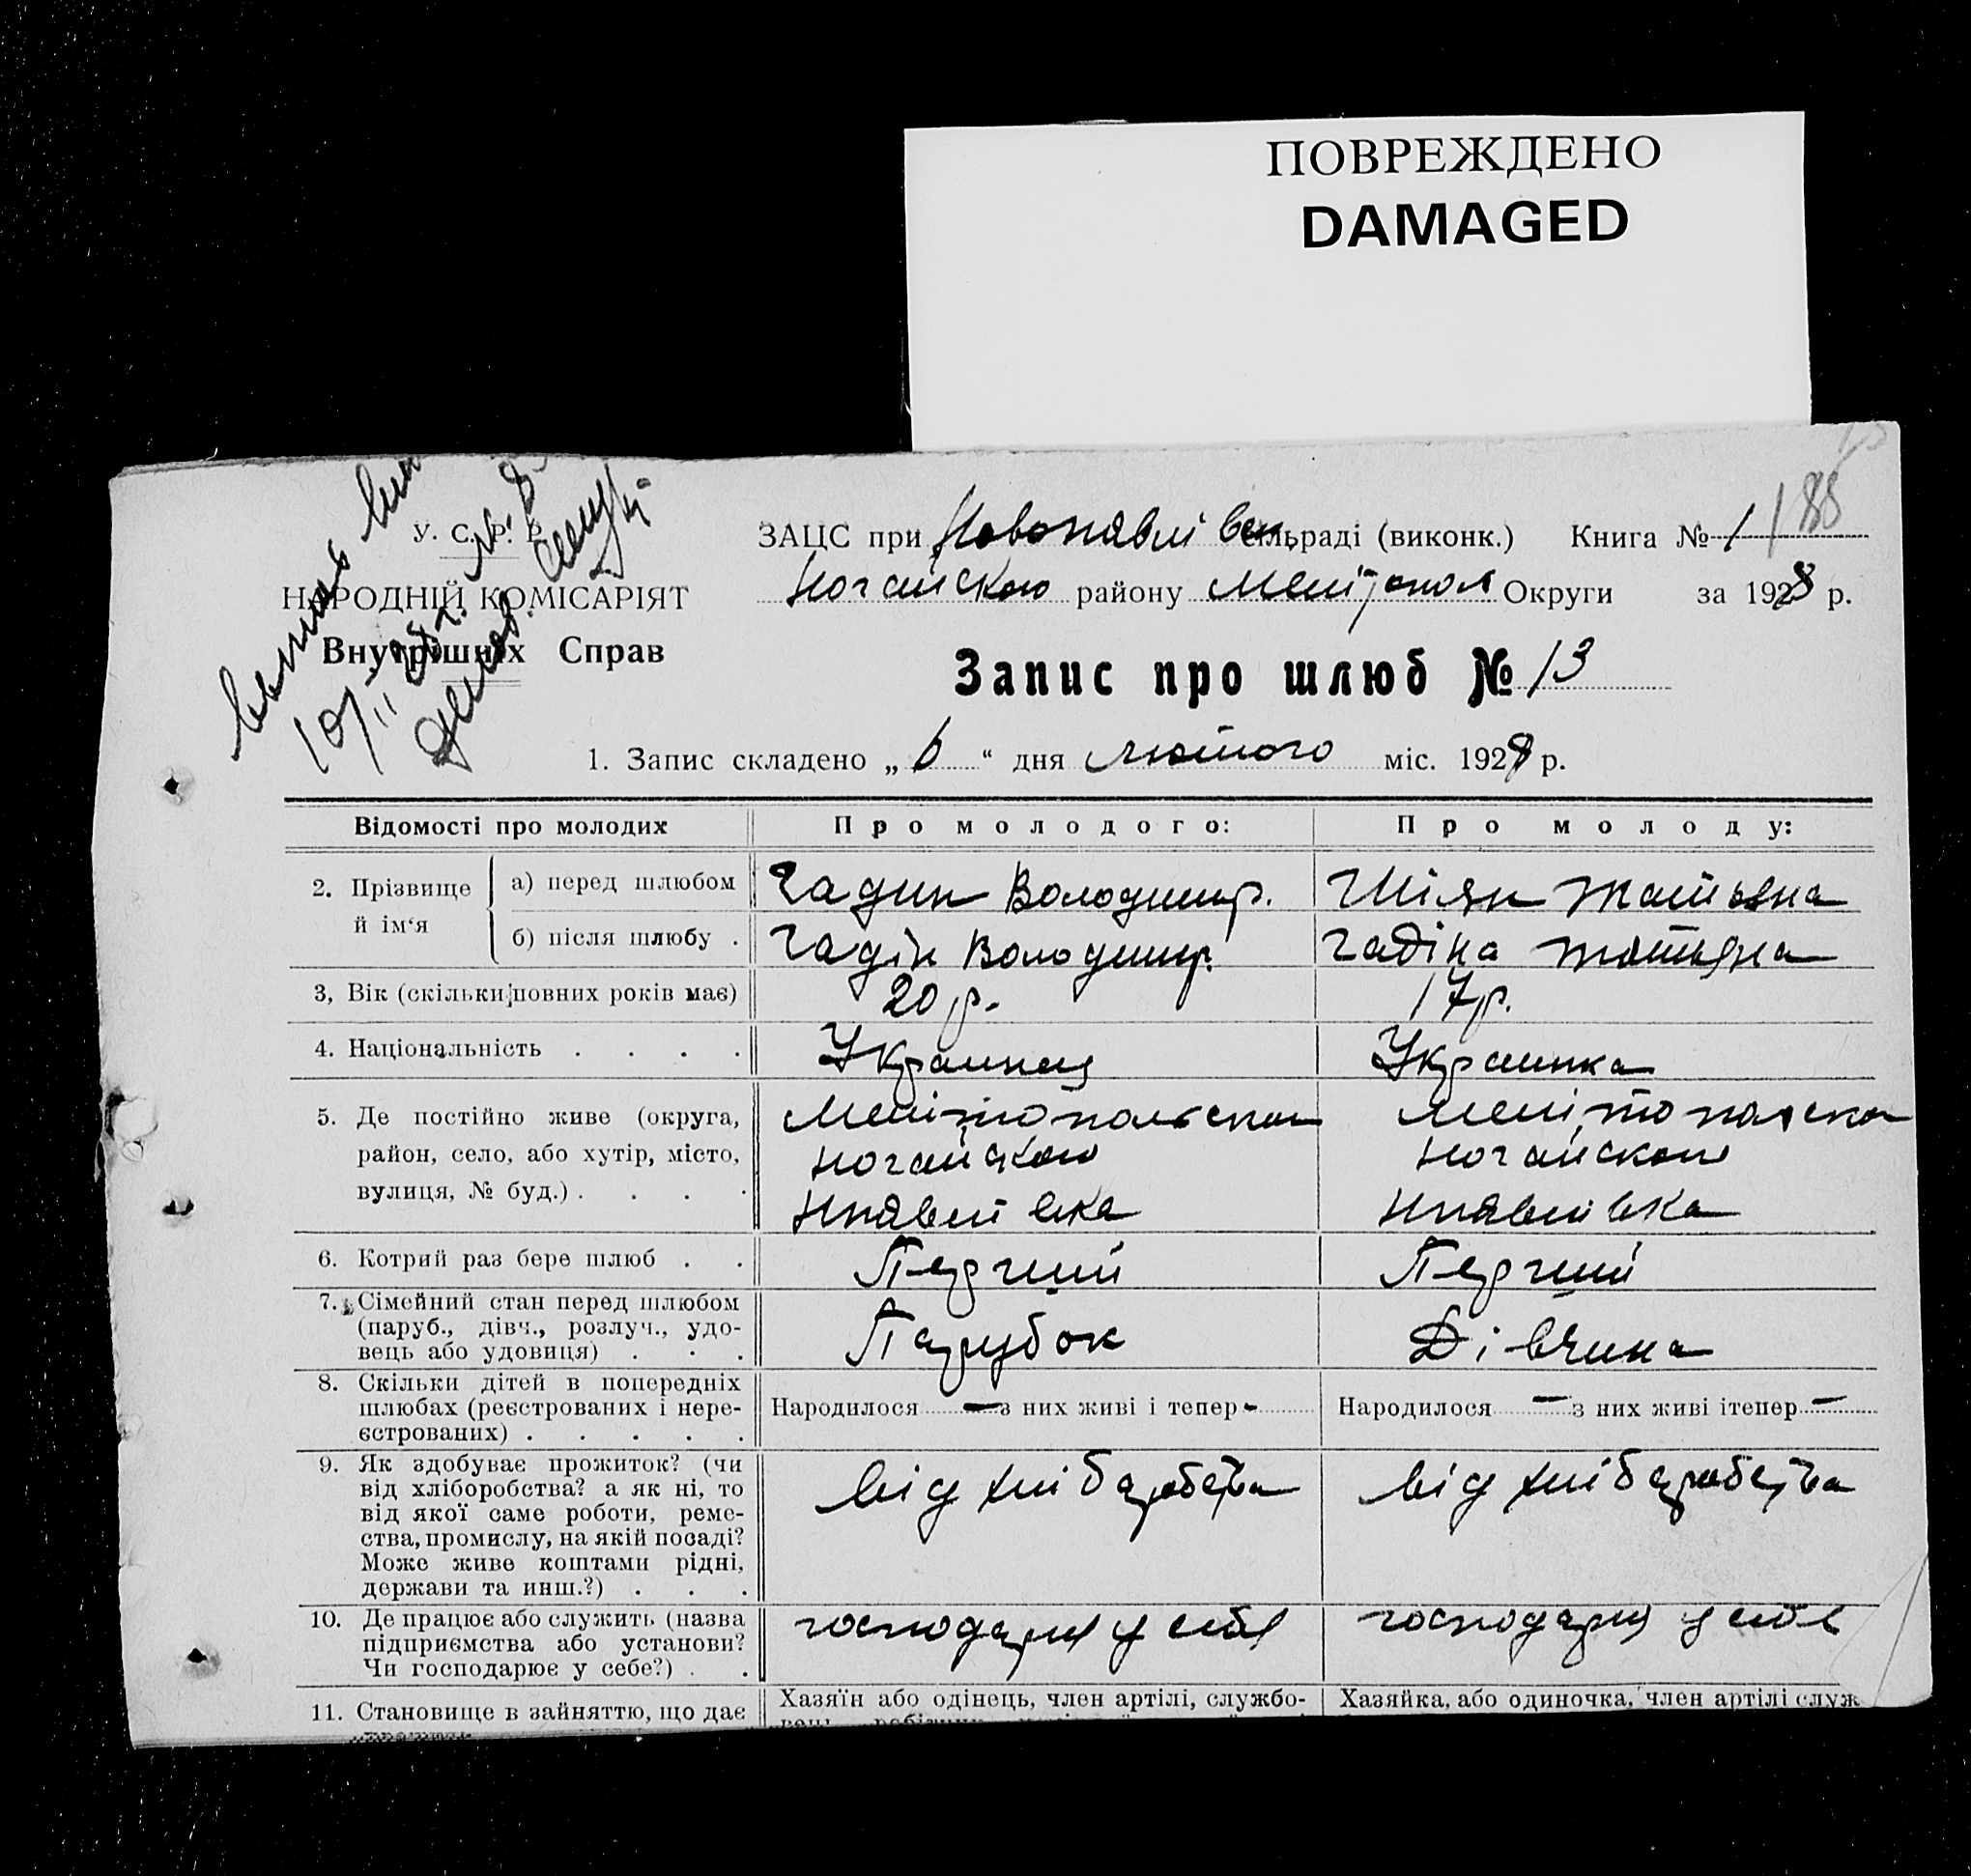 ПОВРЕЖДЕНО
DAMAGED
У. С. Р. Р.
НАРОДНІЙ КОМІСАРІЯТ
Внутрішніх Справ
ЗАЦС при Новопавлівск. сільраді (виконк.) Книга № 1 188
Ногайского району Мелітопол Округи за 1928 р.
Запис про шлюб № 13
1. Запис складено „ 6 “ дня лютого міс. 1928 р.
Відомості про молодих Про молодого: Про молоду:
2. Прізвище й ім‘я
а) перед шлюбом Гадин Володимир. Шіян Татьяна
б) після шлюбу . Гадін Володимир. Гадіна Татьяна
3, Вік (скільки повних років має) 20 р. 17 р.
4. Національність . . . . Украинец Украинка
5. Де постійно живе (округа, Мелітопольскои Мелітополскои
район, село, або хутір, місто, Ногайского Ногайского
вулиця, № буд.) . . . . Нпавлівка Нпавлівка
6. Котрий раз бере шлюб . . Перший Перший
7. Сімейний стан перед шлюбом
(паруб., дівч., розлуч., удо-
вець або удовиця) . . . Парубок Дівчина
8. Скільки дітей в попередніх
шлюбах (реєстрованих і нере-
єстрованих) . . . . .
Народилося — з них живі і тепер - Народилося — з них живі ітепер —
9. Як здобуває прожиток? (чи
від хліборобства? а як ні, то
від якої саме роботи, реме-
ства, промислу, на якій посаді?
Може живе коштами рідні,
держави та инш.?) . . .
від хлібаробства від хлібаробства
10. Де працює або служить (назва
підприємства або установи?
Чи господарює у себе?) . .
господарює у себе господарює у себе
11. Становище в зайняттю, що дає
Хазяїн або одінець, член артілі, службо- Хазяйка, або одиночка, член артілі служ